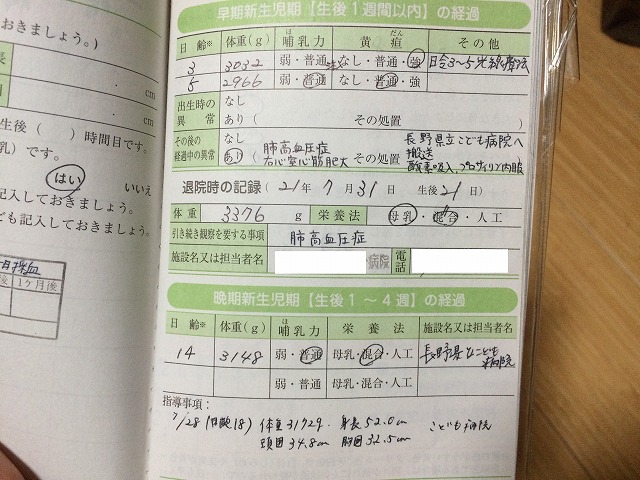 おきましょう。)
長
cm
cm
生後( )時間目です。
乳)です。
はい いいえ
記入しておきましょう。
ども記入しておきましょう。
後 1ヶ月後
早期新生児期【生後1週間以内】の経過
日齢※ 体重(g) 哺乳力 黄疸 その他
ほ だん
3 3032 弱・普通 なし・普通・強 日令3〜5光線療法
5 2966 弱・普通 なし・普通・強
出生時の異常 なし
あり( その処置 )
その後の経過中の異常 なし
あり(肺高血圧症 右心室心筋肥大 その処置 長野県立こども病院へ搬送 酸素吸入、プロサイリン内服
退院時の記録(21年 7月31日 生後21日)
体重 3376 g 栄養法 母乳・混合・人工
引き続き観察を要する事項 肺高血圧症
施設名又は担当者名 病院 電話
晩期新生児期【生後1〜4週】の経過
日齢※ 体重(g) 哺乳力 栄養法 施設名又は担当者名
ほ
14 3148 弱・普通 母乳・混合・人工 長野県立こども病院
弱・普通 母乳・混合・人工
指導事項:
7/28(日齢18) 体重3172g. 身長52.0cm こども病院
頭囲34.8cm 胸囲32.5cm